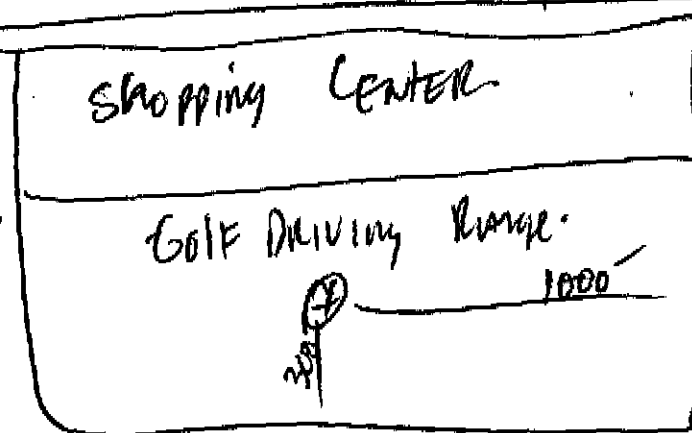 Shopping Center
Golf Driving Range.
1000'